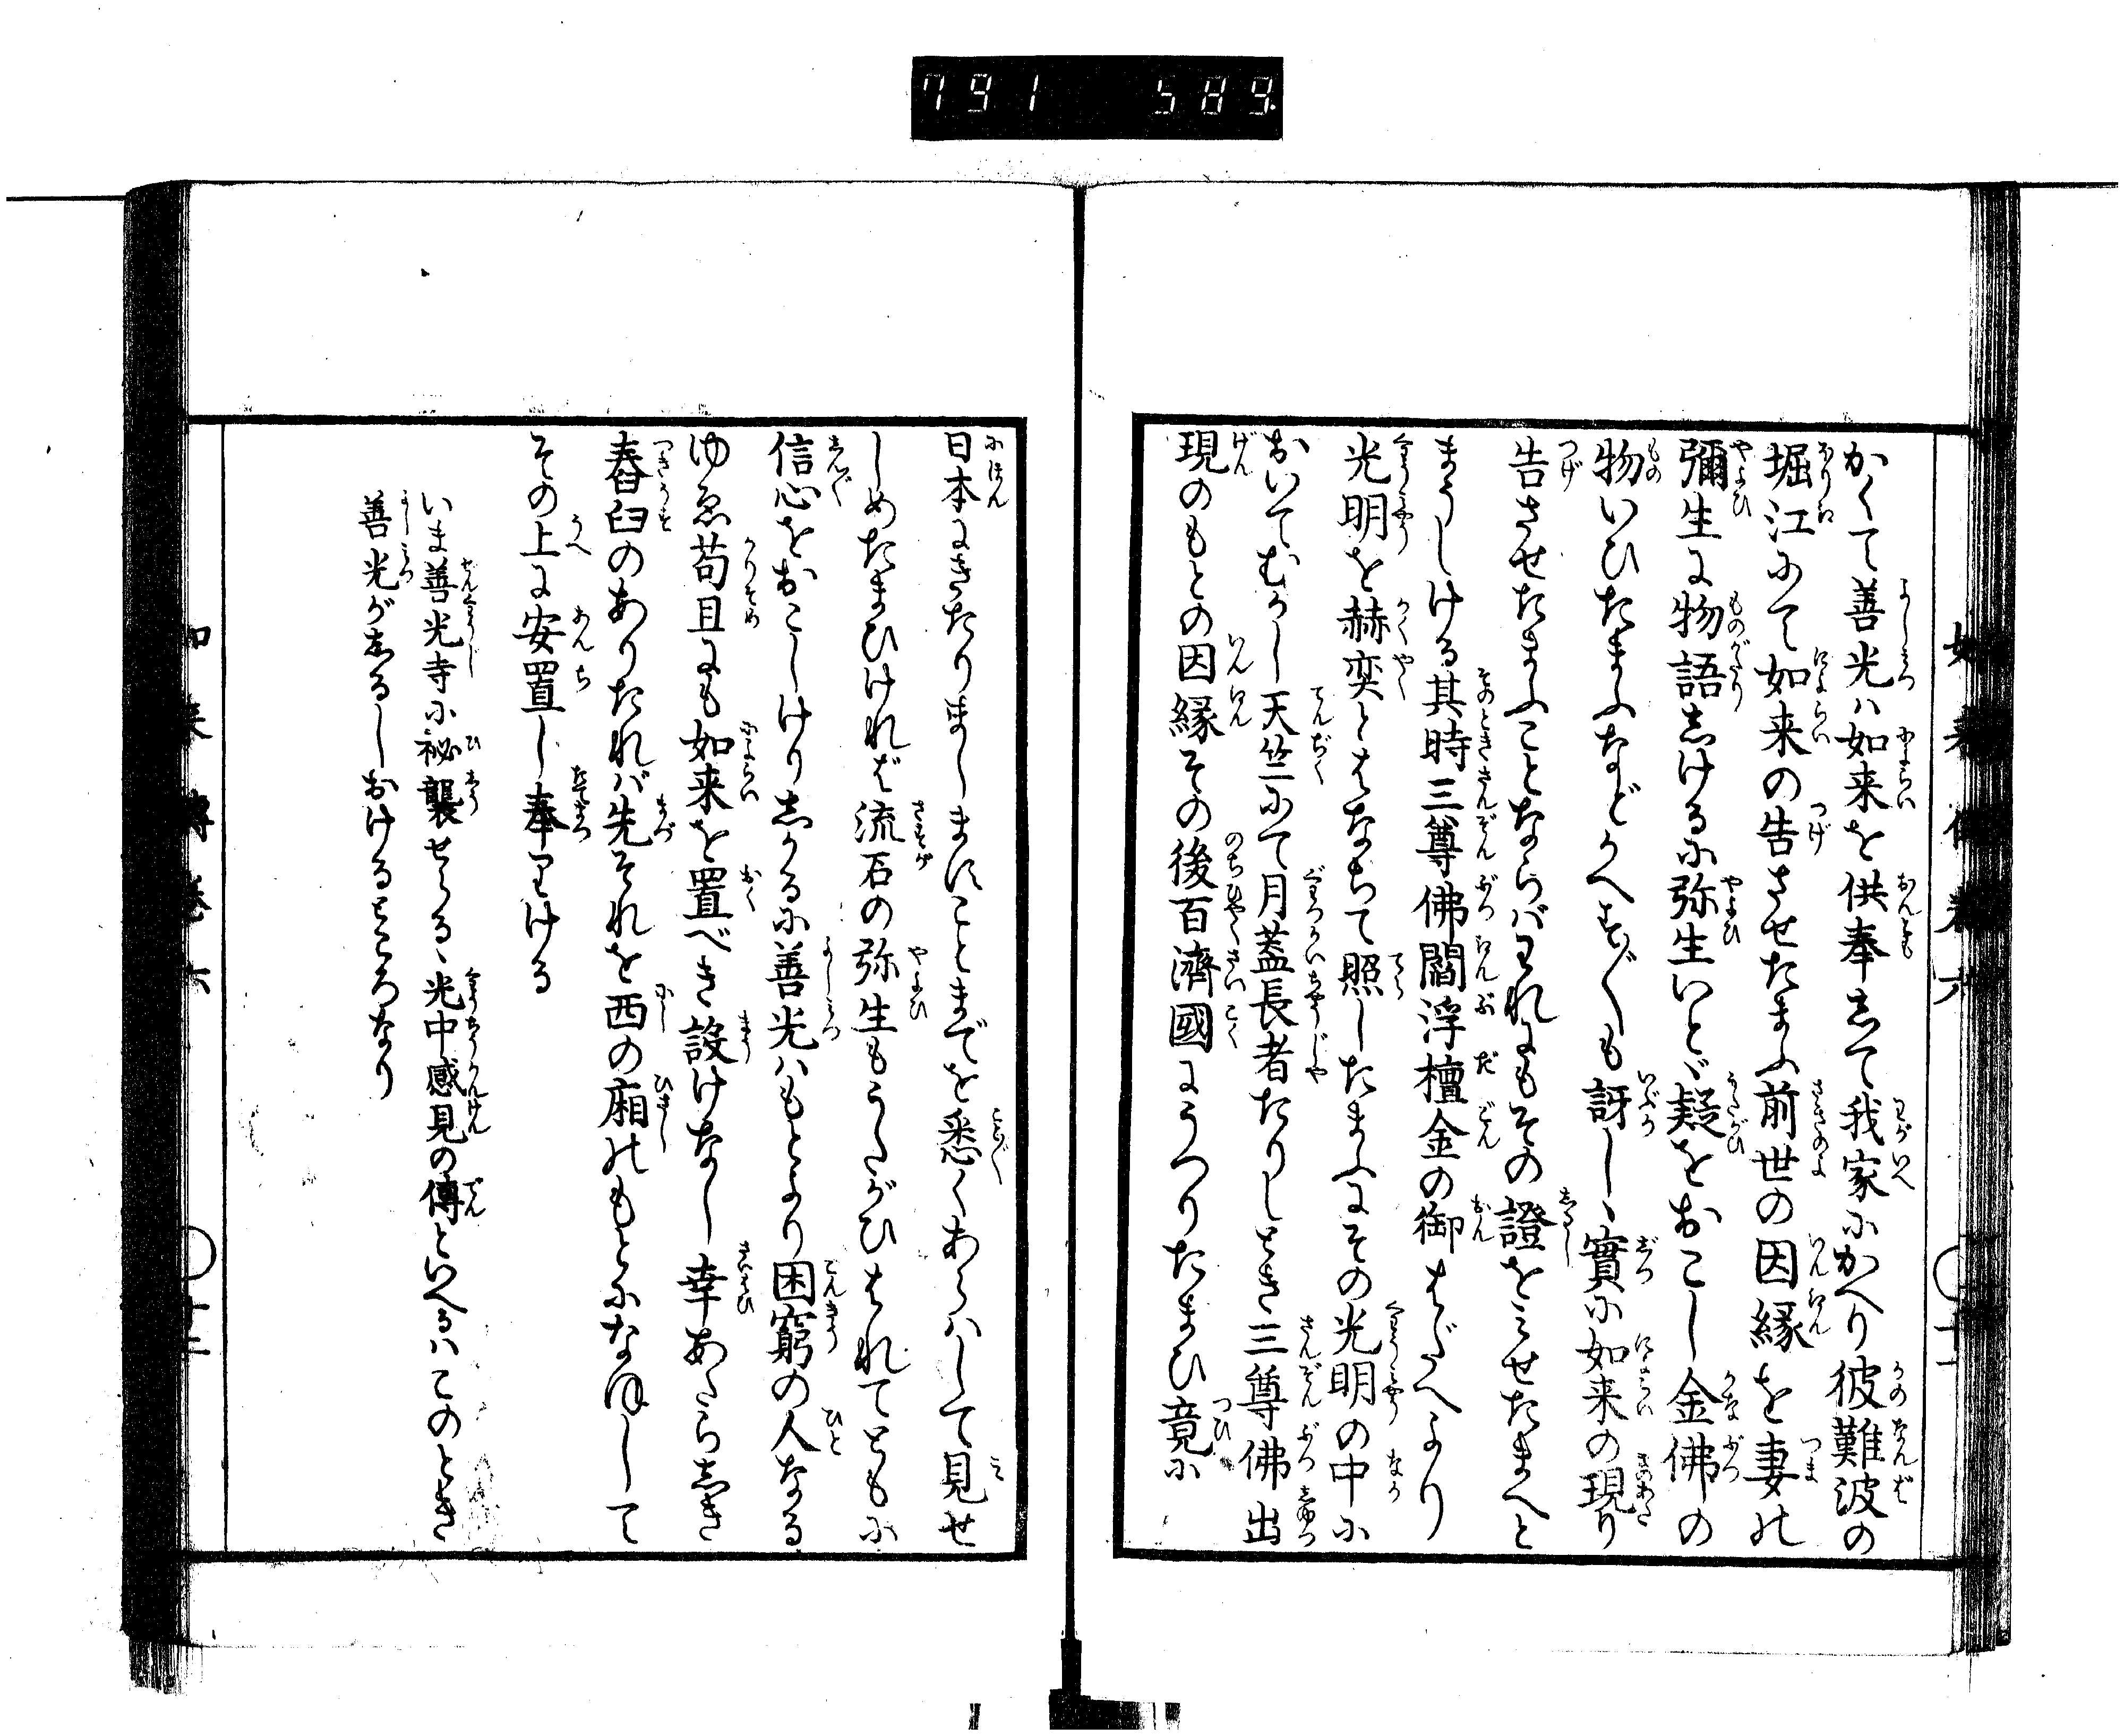 791 589
かくて善光ハ如来を供奉して我家にかへり彼難波の
堀江にて如来の告させたまふ前世の因縁を妻の
彌生に物語しけるに弥生いとゞ疑をおこし金佛の
物いひたまふなどかへす〴〵も訝し、實に如来の現り
告させたまふことならバわれにもその證をみせたまへと
まうしける其時三尊佛閻浮檀金の御はだへより
光明を赫奕とはなちて照したまふにその光明の中に
おいてむかし天竺にて月蓋長者たりしとき三尊佛出
現のもとの因縁その後百濟國にうつりたまひ竟に
日本にきたりましますことまでを悉くあらハして見せ
しめたまひければ流石の弥生もうたがひはれてともに
信心をおこしけりしかるに善光ハもとより困窮の人なる
ゆゑ苟且にも如来を置べき設けなし幸あたらしき
舂臼のありたれバ先それを西の廂のもとになほして
その上に安置し奉りける
いま善光寺に祕襲せらる、光中感見の傳といへるハこのとき
善光がしるしおけるところなり